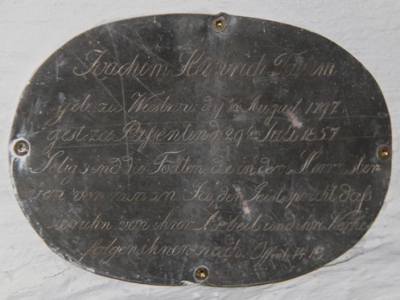 Joachim Hinrich
geb. zu August 1797
gest. zu 29 Juli 1857
Selig sind die Todten die in dem Herrn ster
ben von nun an Ja, der Geist spricht daß
sie ruhn von ihrer Arbeit und ihre Werke
folgen ihnen nach. Off. 14. 13